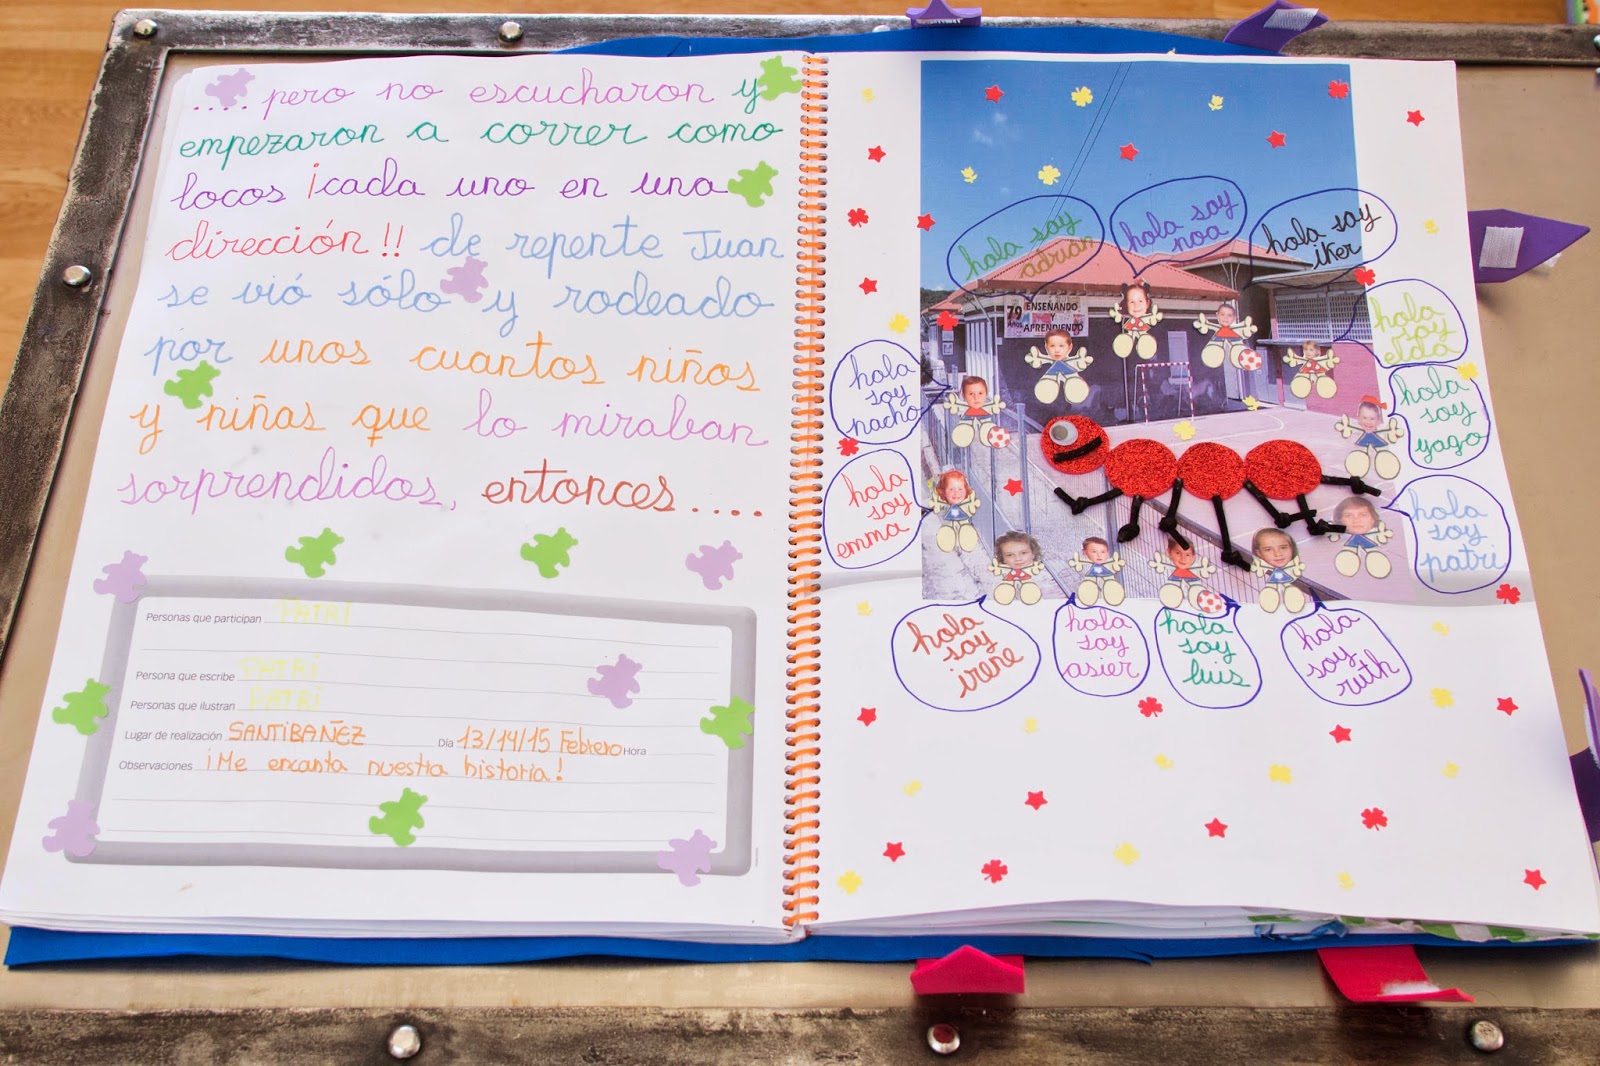 ..... pero no escucharon y
empezaron a correr como
locos ¡cada uno en una
dirección!! de repente Juan
se vió sólo y rodeado
por unos cuantos niños
y niñas que lo miraban
sorprendidos, entonces....
Personas que participan PATRI
Persona que escribe PATRI
Personas que ilustran PATRI
Lugar de realización SANTIBAÑEZ Día 13/14/15 Febrero Hora
Observaciones ¡Me encanta nuestra historia!
hola soy
adrián
hola soy
noa
hola soy
iker
79
años
ENSEÑANDO
Y
APRENDIENDO
hola
soy
elda
hola
soy
nacho
hola
soy
yago
hola
soy
emma
hola
soy
patri
hola
soy
irene
hola
soy
asier
hola
soy
luis
hola
soy
ruth